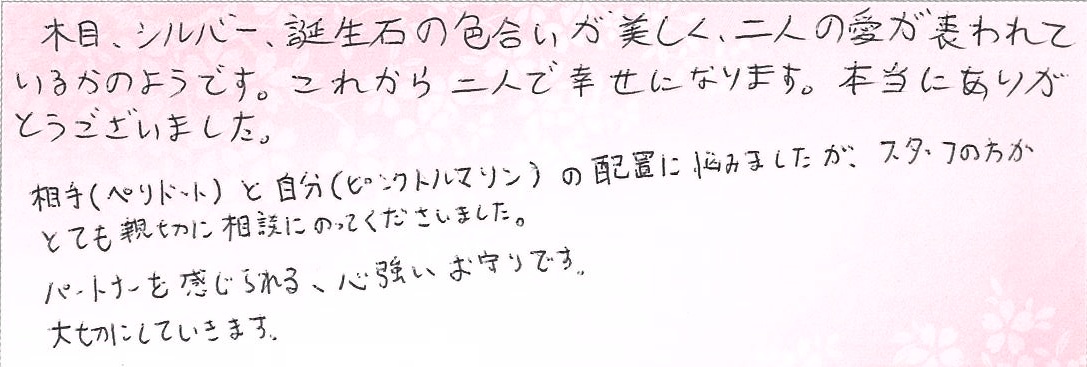 木目、シルバー、誕生石の色合いが美しく、二人の愛が表われて
いるかのようです。これから二人で幸せになります。本当にありが
とうございました。
相手(ペリドット)と自分(ピンクトルマリン)の配置に悩みましたが、スタッフの方が
とても親切に相談にのってくださいました。
パートナーを感じられる、心強いお守りです。
大切にしていきます。